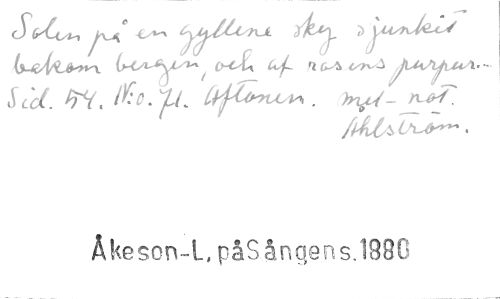 Solen på en gyllene sky sjunkit
bakom bergen, och af rosens purpur...
Sid. 54. N:o. 71. Aftonen. met- not.
Ahlström.
Åkeson-L, påSångens.1880